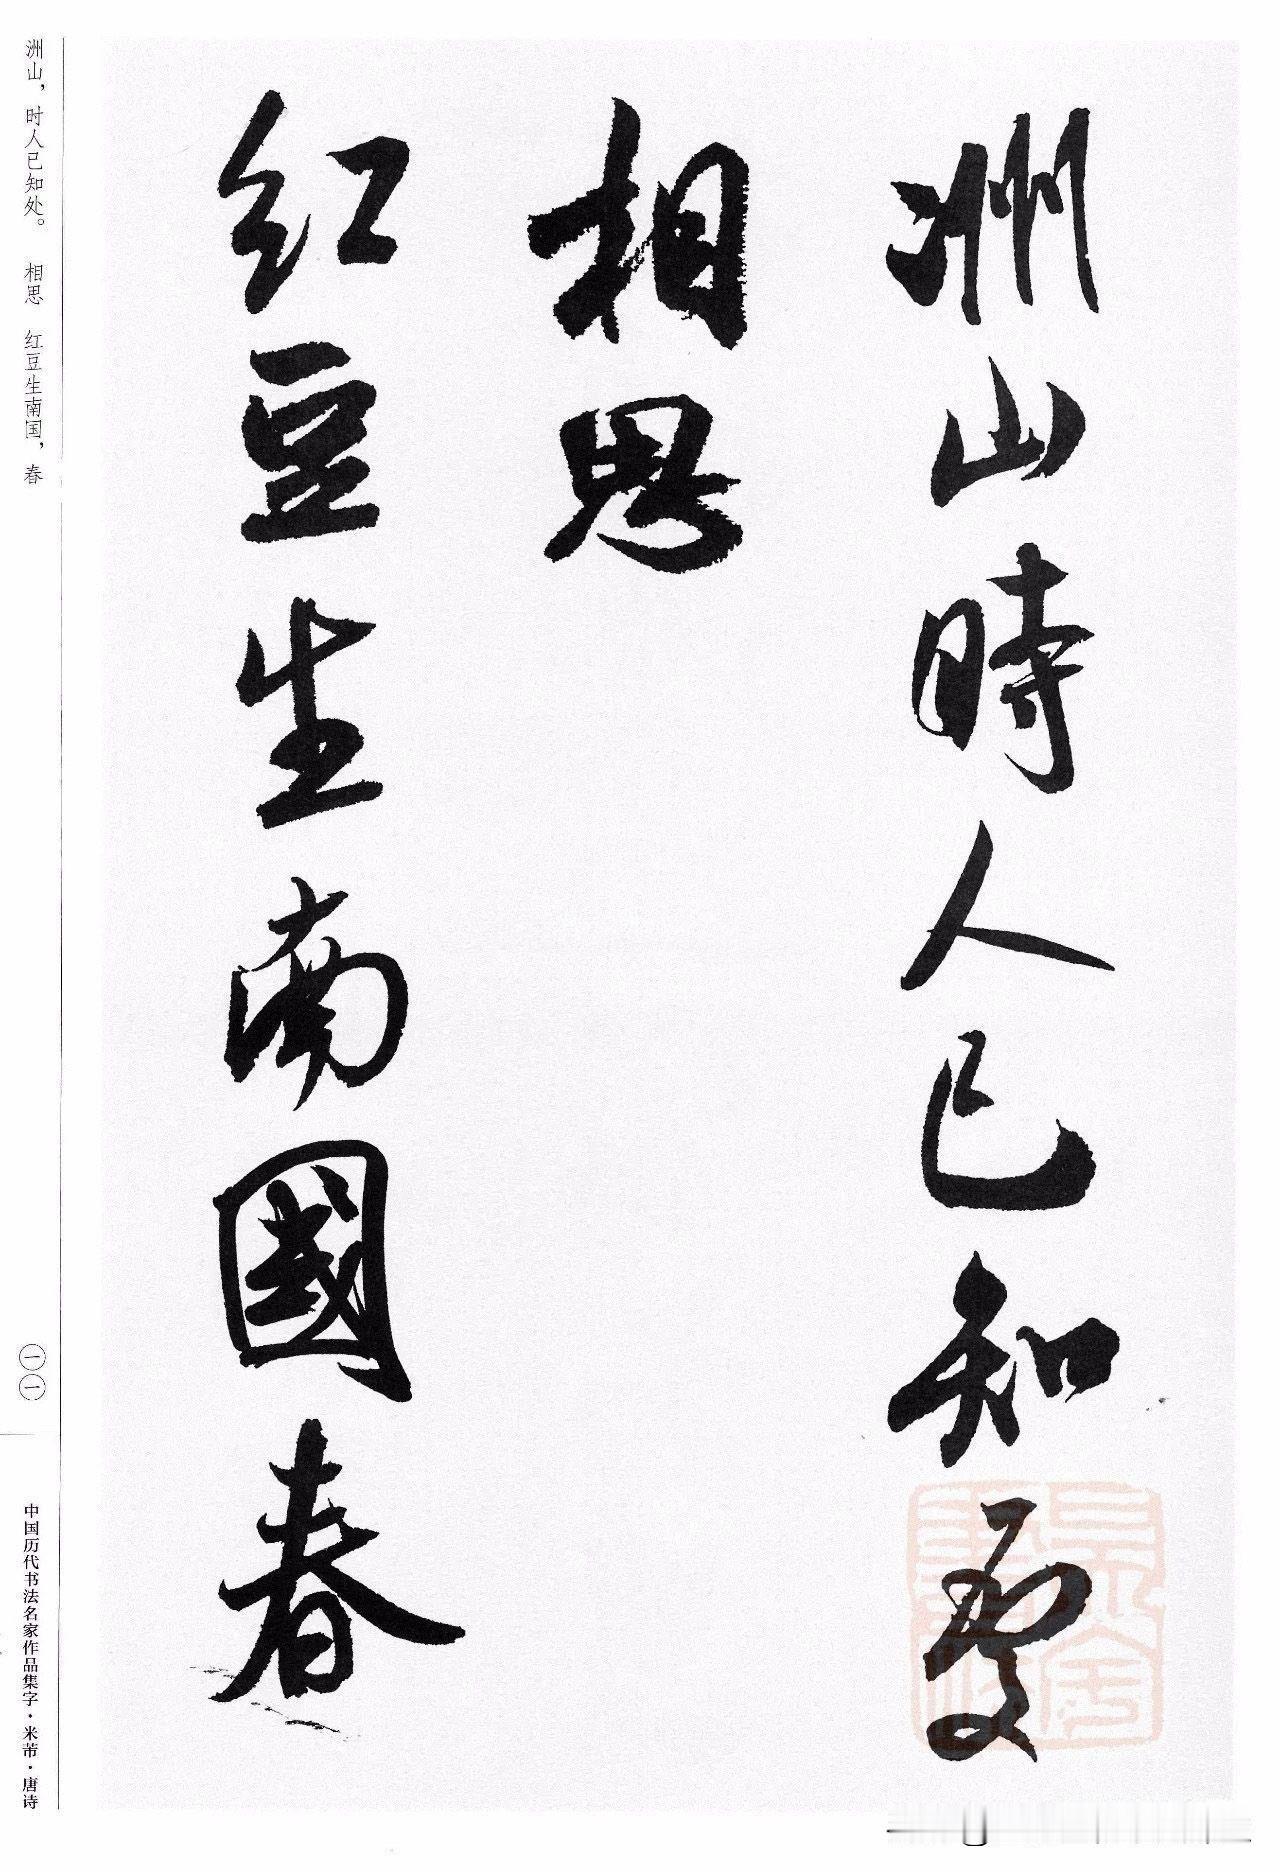 洲山時人已知處
相思
红豆生南國春
洲山，时人已知处。 相思 红豆生南国，春
一一
中国历代书法名家作品集字·米芾·唐诗